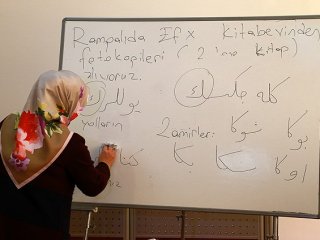 Rampalıda Efx Kitabevinden
fotokopileri ( 2 'inci kitap)
alıyoruz.
كله جكسك
يوللرك
yolların 2 amirler: شوكا بوكا
بكا اوكا